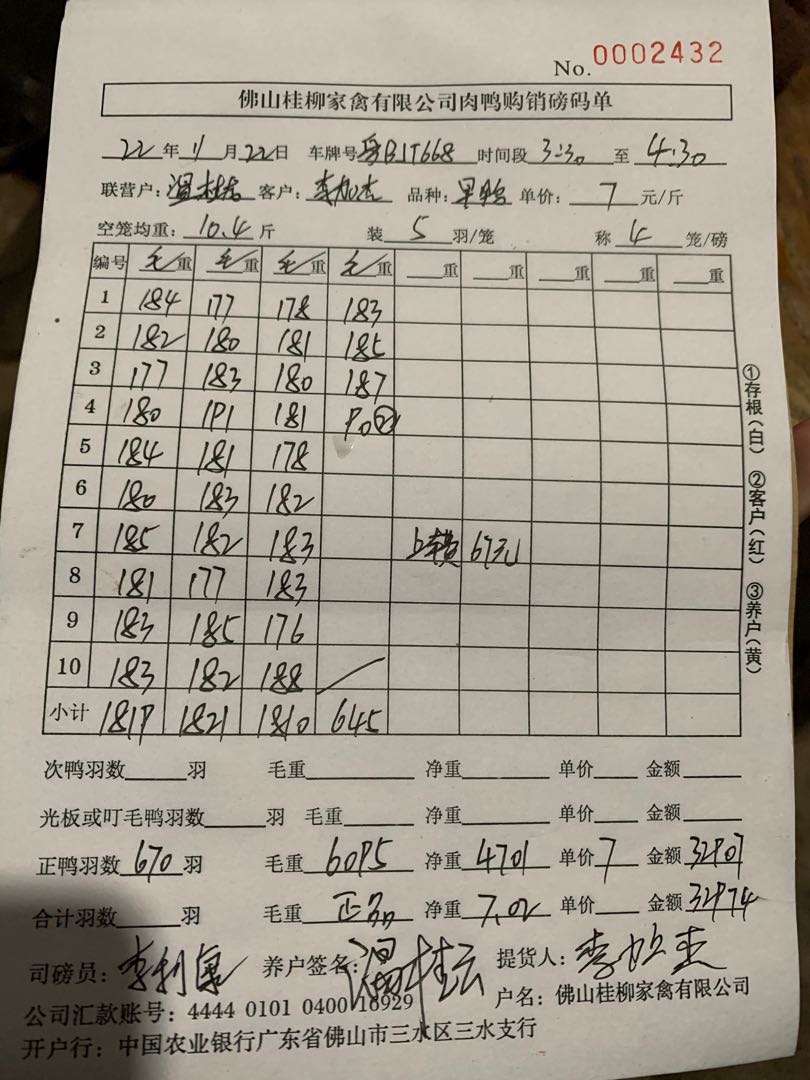 No. 0002432
佛山桂柳家禽有限公司肉鸭购销磅码单
22年11月22日 车牌号粤BJT668 时间段3:30至4:30
联营户:温桂云 客户:李加杰 品种: 单价:7元/斤
空笼均重:10.4斤 装5羽/笼 称4笼/磅
编号 毛重 毛重 毛重 毛重 重 重 重 重
1 184 177 178 183
2 182 180 181 185
3 177 183 180 187
4 180 191 181 90②
5 184 181 178
6 180 183 182
7 185 182 183 67元
8 181 177 183
9 183 185 176
10 183 182 188
小计 1819 1821 1810 645
次鸭羽数 羽 毛重 净重 单价 金额
光板或叮毛鸭羽数 羽 毛重 净重 单价 金额
正鸭羽数670羽 毛重6095 净重4701 单价7 金额32907
合计羽数 羽 毛重 净重7.02 单价 金额32974
司磅员:李利 养户签名:温桂云 提货人:李加杰
公司汇款账号:4444 0101 0400 16929 户名:佛山桂柳家禽有限公司
开户行:中国农业银行广东省佛山市三水区三水支行
①存根(白) ②客户(红) ③养户(黄)